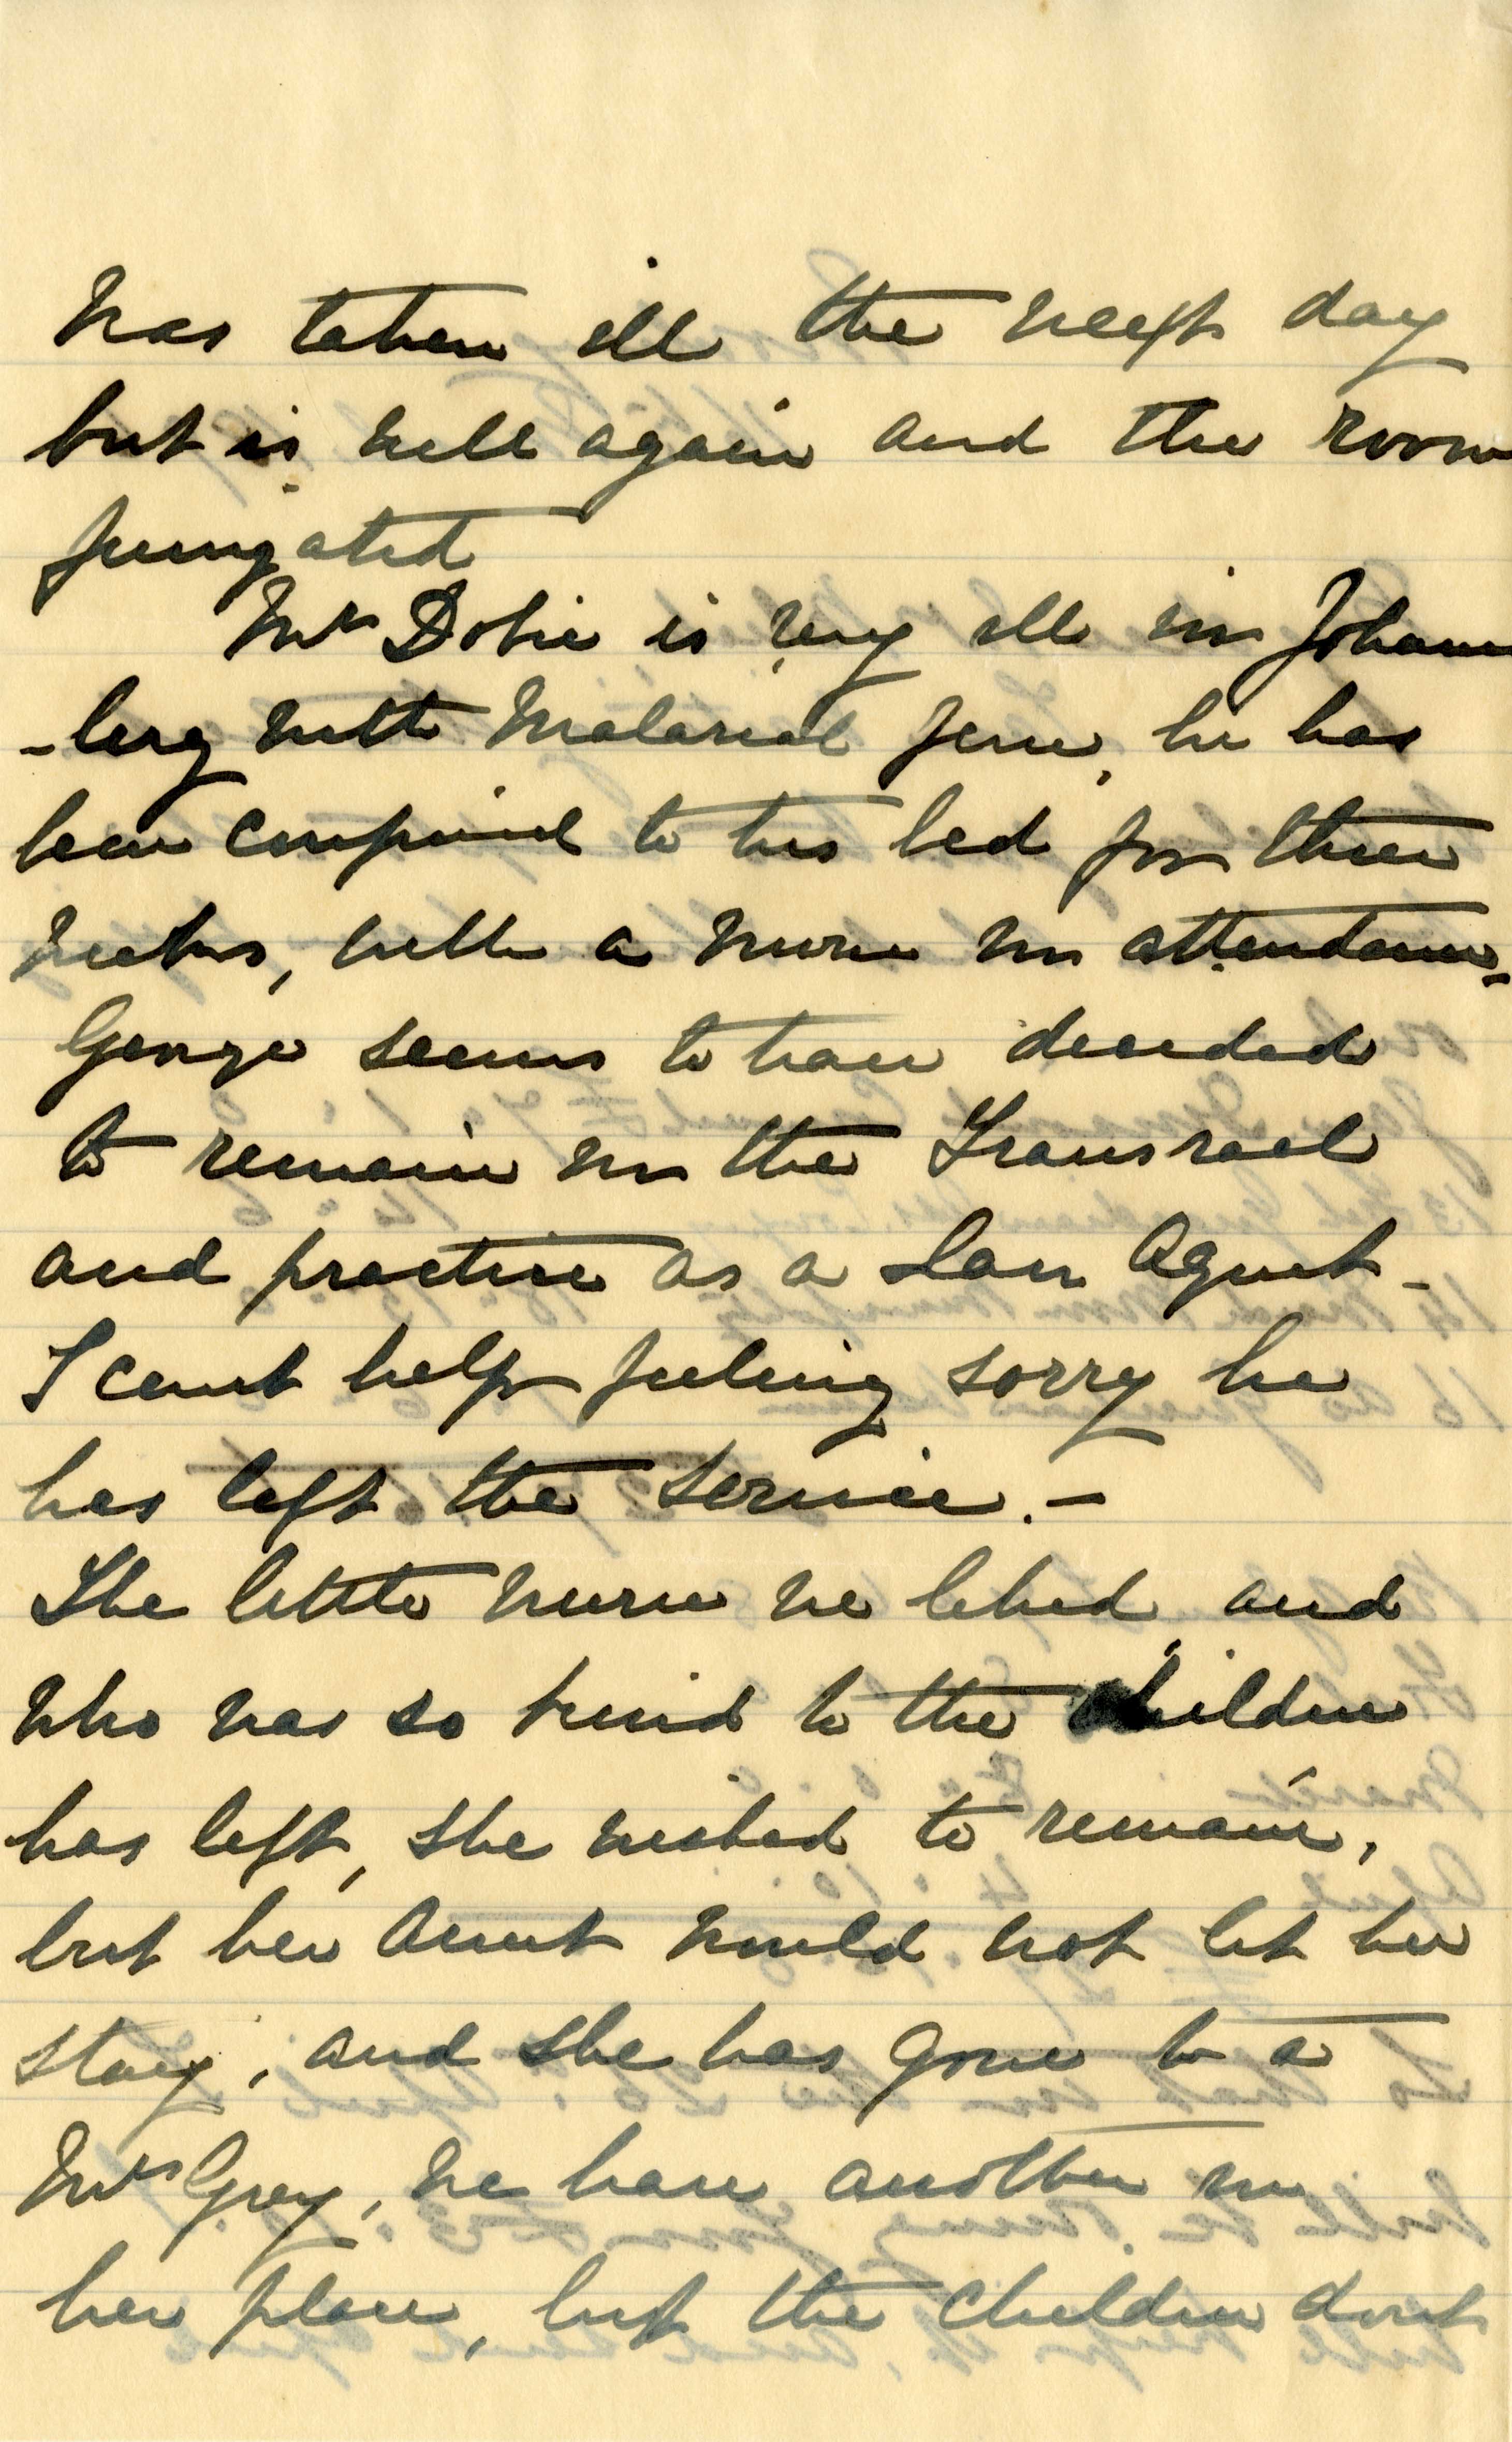 was taken ill the next day
but is well again and the room
fumgated
Mr Dobie is very ill in Johann
-berg with Malarial fever, he has
been confined to his bed for three
weeks, with a nurse in attendance -
George seems to have decided
to remain in the Transvaal
and practice as a Law Agent -
I cant help feeling sorry he
has left the service. -
The little nurse we liked, and
who was so kind to the children
has left, she wished to remain,
but her Aunt would not let her
stay, and she has gone to a
Mrs Grey, we have another in
her place, but the children dont